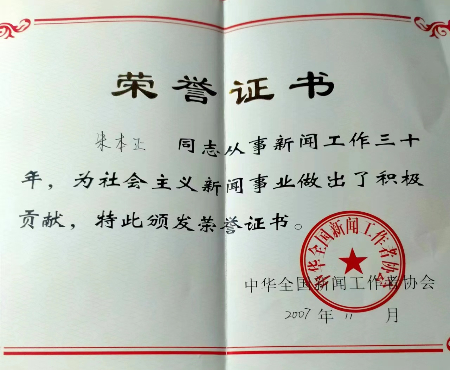 荣誉证书
朱本正 同志从事新闻工作三十
年，为社会主义新闻事业做出了积极
贡献，特此颁发荣誉证书。
中华全国新闻工作者协会
中华全国新闻工作者协会
2007 年 11 月